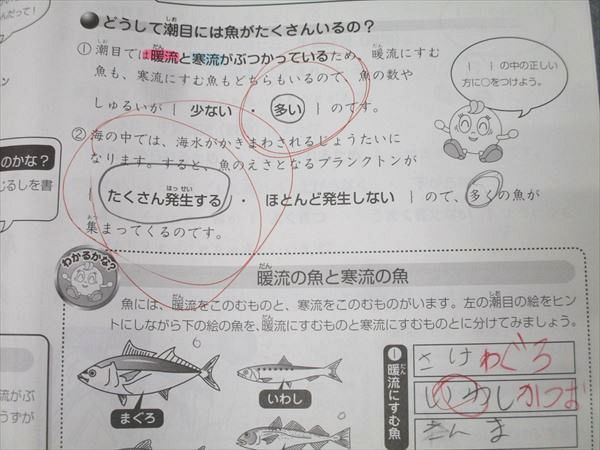 んだって！
●どうして潮目には魚がたくさんいるの？
①潮目では暖流と寒流がぶつかっているため、暖流にすむ
魚も、寒流にすむ魚もどちらもいるので、魚の数や
しゅるいが｛ 少ない ・ 多い ｝のです。
｛ ｝の中の正しい
方に○をつけよう。
②海の中では、海水がかきまわされるじょうたいに
なります。すると、魚のえさとなるプランクトンが
｛ たくさん発生する ・ ほとんど発生しない ｝ので、多くの魚が
集まってくるのです。
のかな？
じるしを書
わかるかな？
暖流の魚と寒流の魚
魚には、暖流をこのむものと、寒流をこのむものがいます。左の潮目の絵をヒン
トにしながら下の絵の魚を、暖流にすむものと寒流にすむものとに分けてみましょう。
まぐろ
いわし
❶暖流にすむ魚
さけ まぐろ
いわし かつお
さんま
流がぶ
うずが